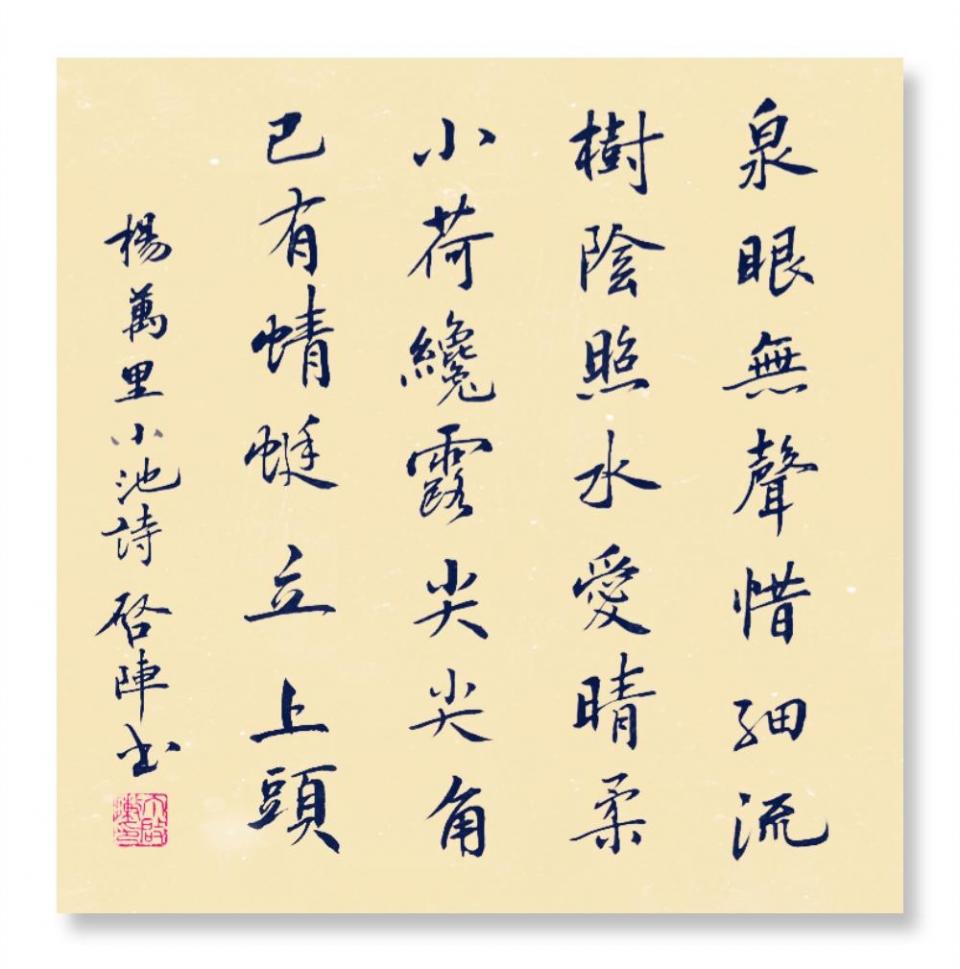 泉眼無聲惜細流
樹陰照水愛晴柔
小荷纔露尖尖角
已有蜻蜓立上頭
楊萬里小池詩 啓陣书